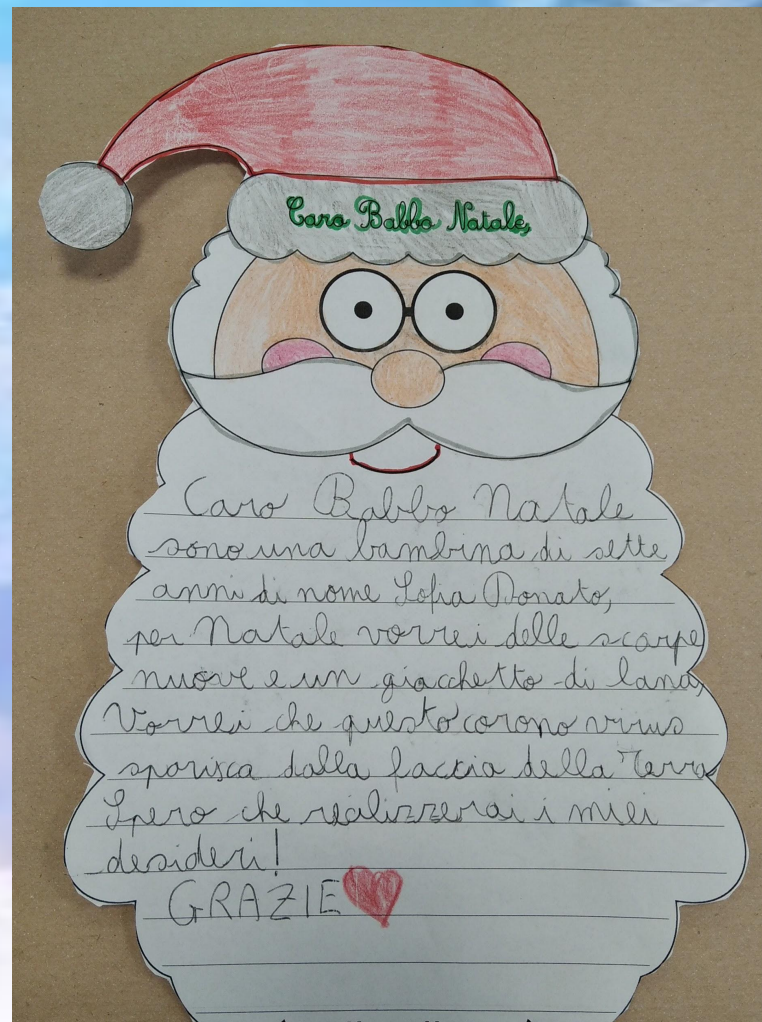 Caro Babbo Natale,
Caro Babbo Natale
sono una bambina di sette
anni di nome Sofia Donato,
per Natale vorrei delle scarpe
nuove e un giacchetto di lana,
Vorrei che questo corono virus
sparisca dalla faccia della Terra
Spero che realizzerai i miei
desideri!
GRAZIE